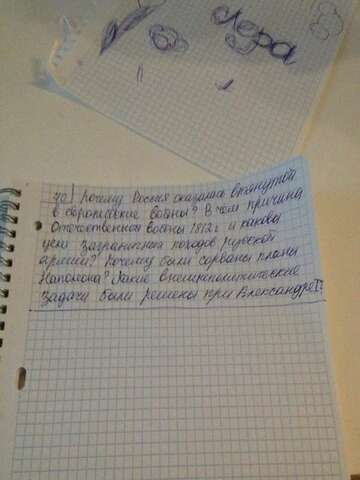 Лера
70) Почему Россия оказалась втянутой
в европейские войны? В чём причина
Отечественной войны 1812 г. и каковы
цели заграничных походов русской
армии? Почему были сорваны планы
Наполеона? Какие внешнеполитические
задачи были решены при Александре I?